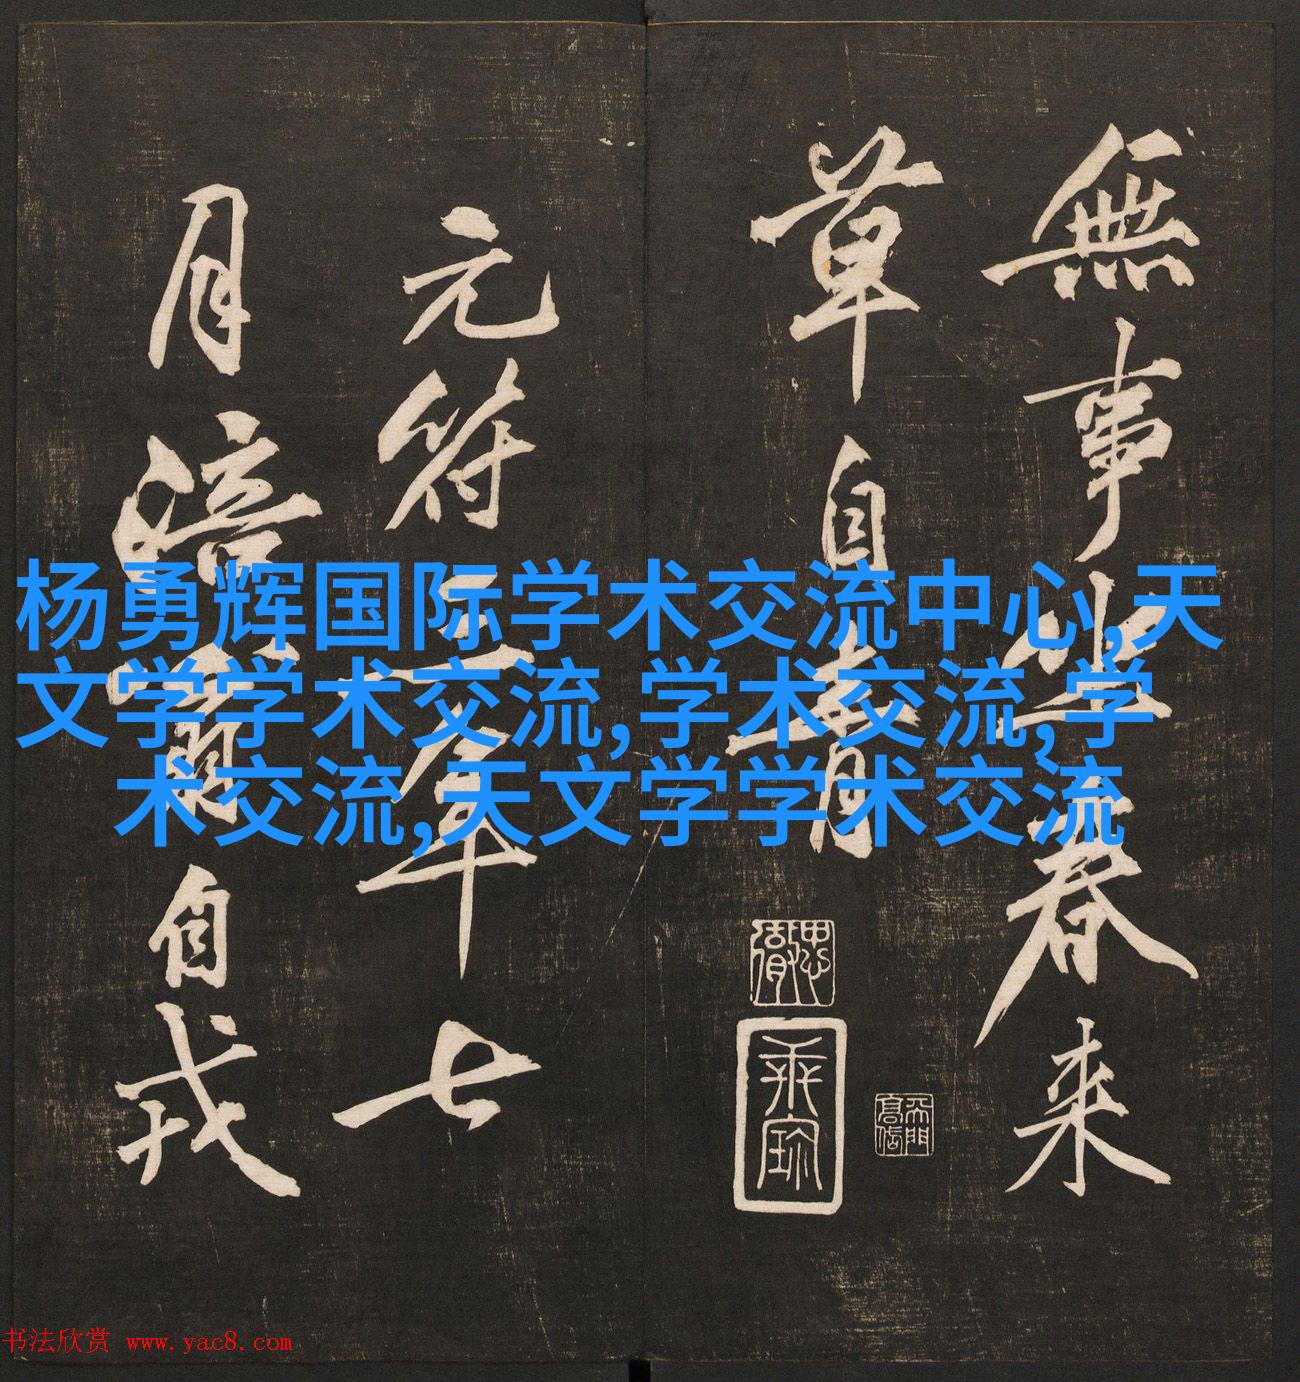 無事坐春来
草自青
元符三年七
月涪翁自戎
杨勇辉国际学术交流中心,天
文学学术交流,学术交流,学
术交流,天文学学术交流
书法欣赏 www.yac8.com